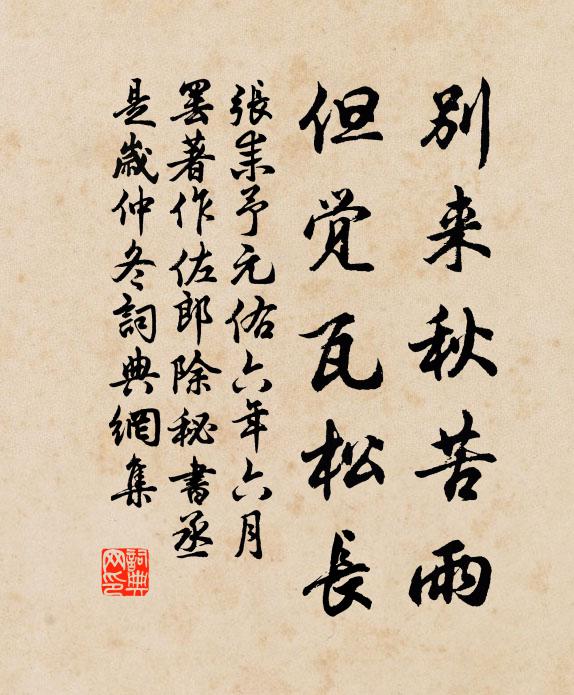 别来秋苦雨
但觉瓦松长
張耒予元佑六年六月
罢著作佐郎除秘書丞
是歲仲冬詞典網集
詞典网印